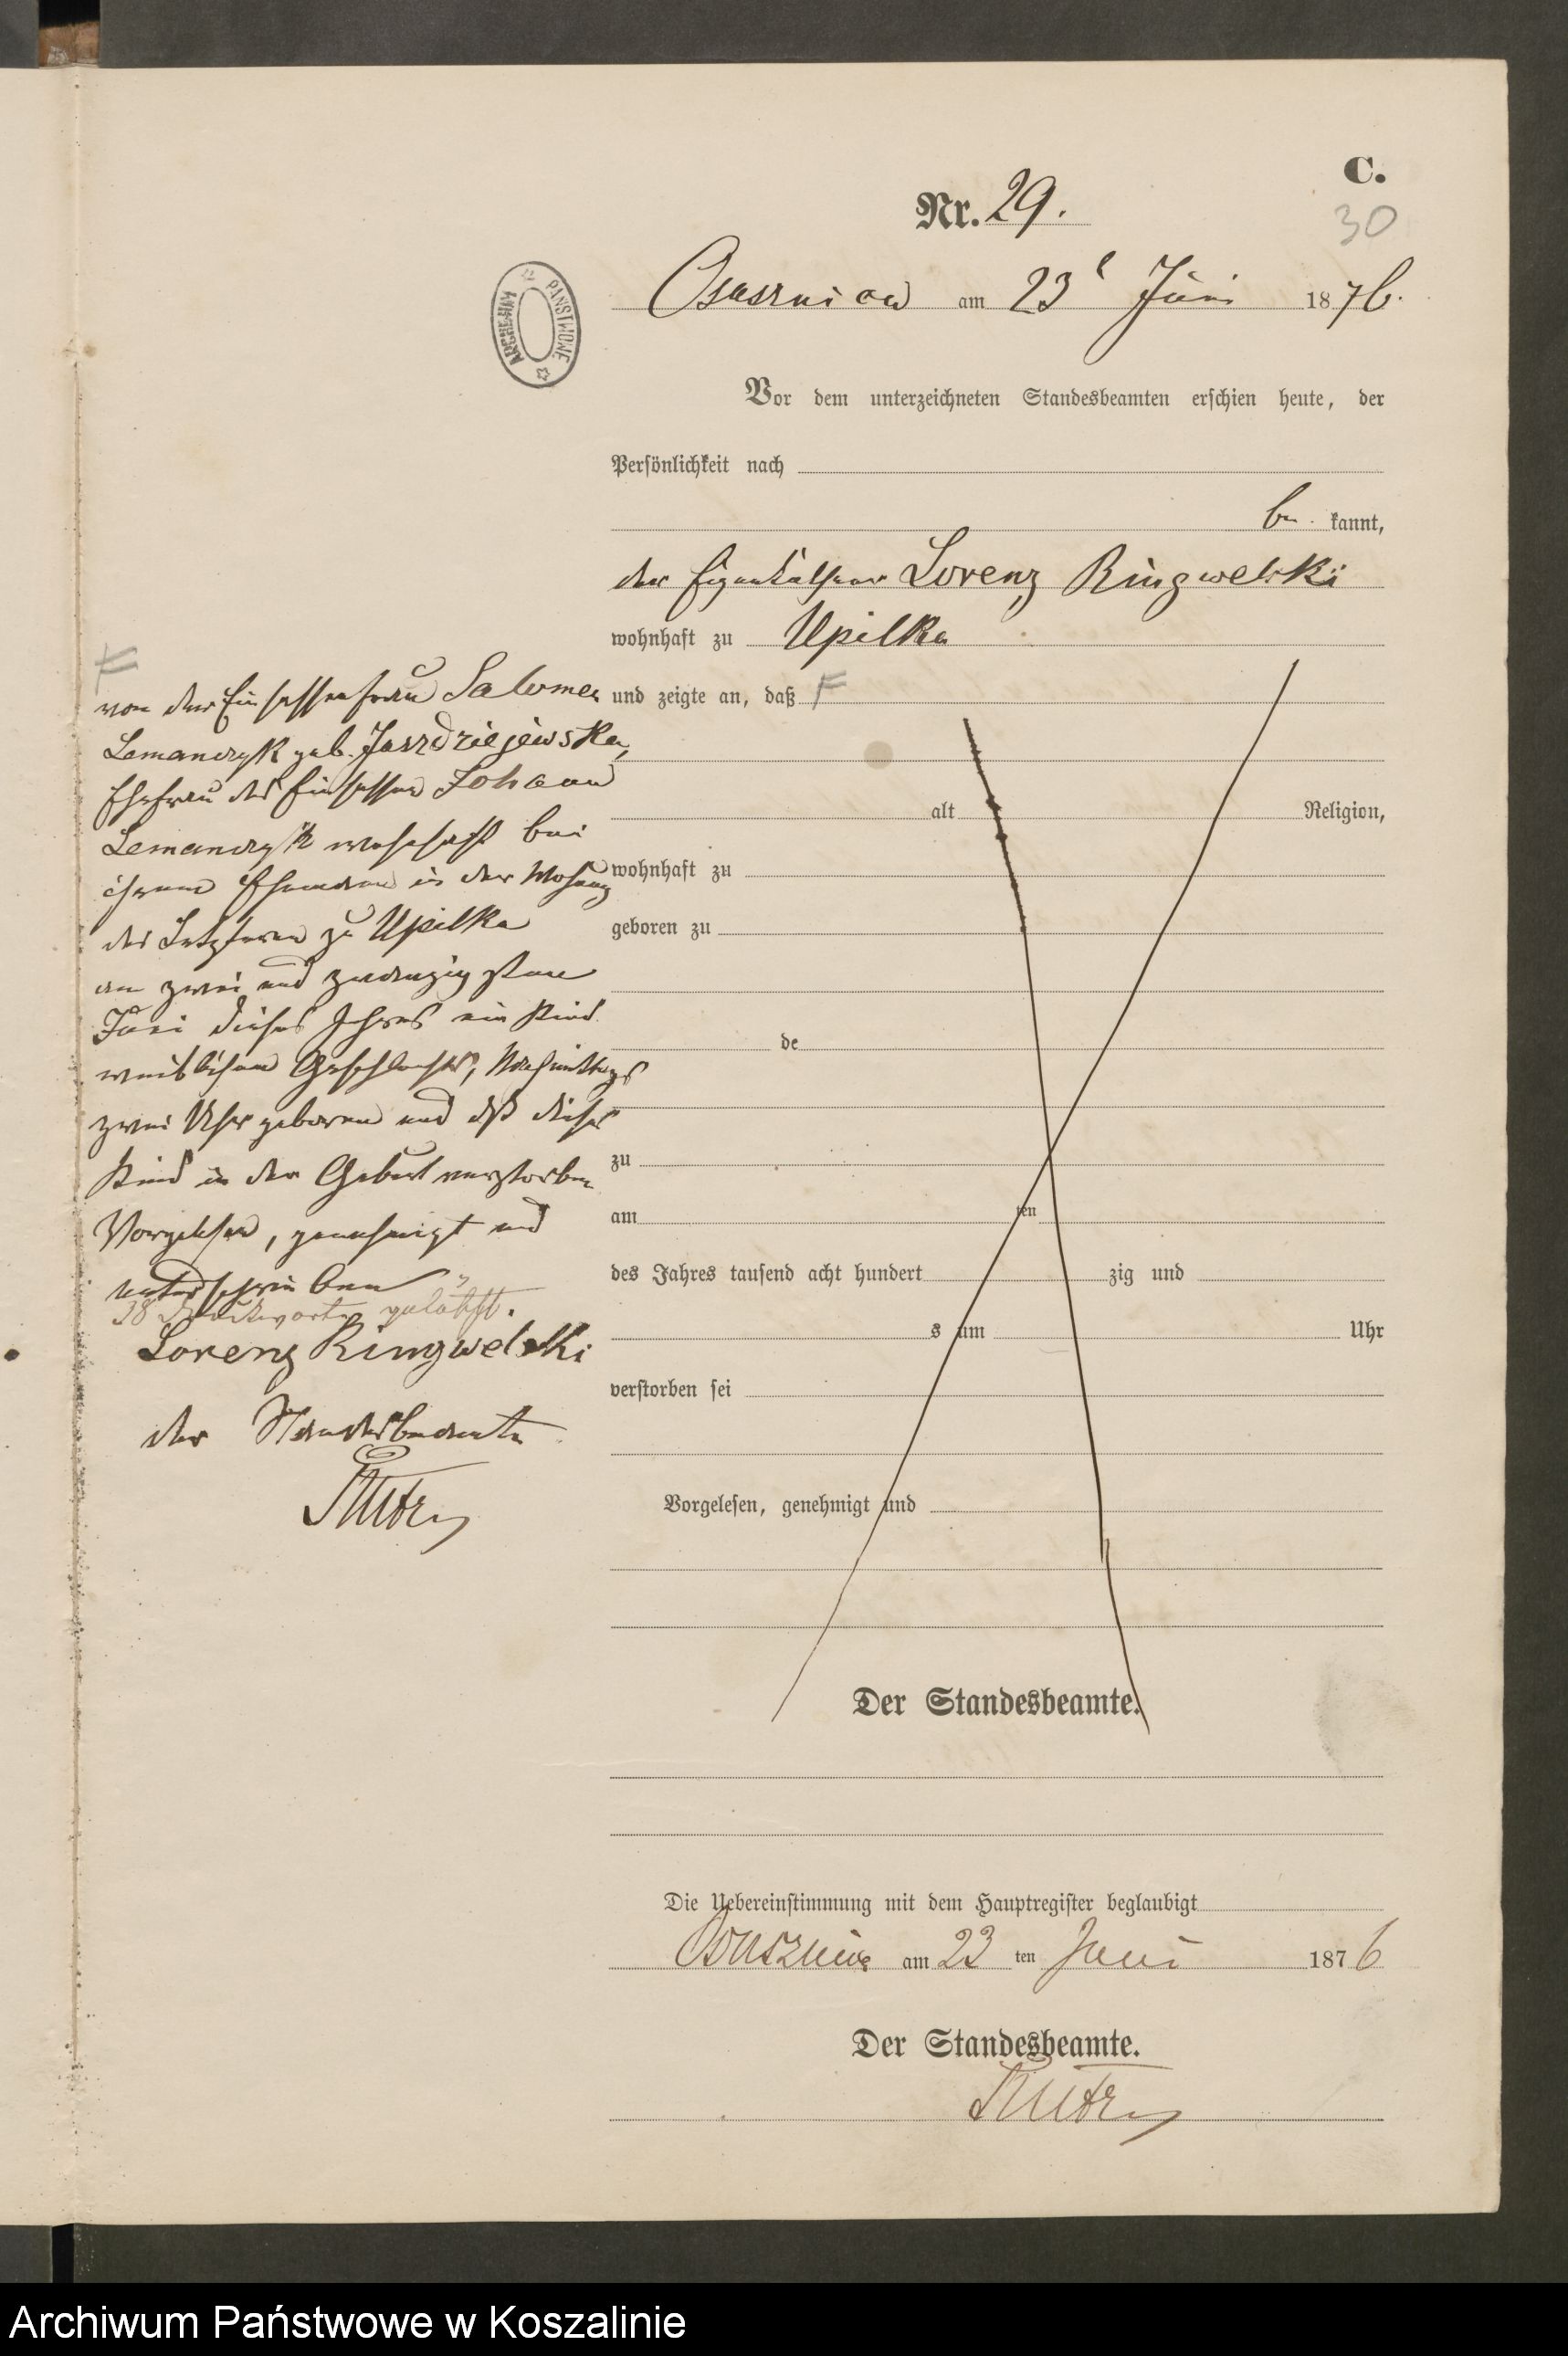 C.
Nr. 29.
30
ARCHIWUM PAŃSTWOWE
am 23t Juni 1876.
Vor dem unterzeichneten Standesbeamten erschien heute, der
Persönlichkeit nach
be kannt,
der Eigenthümer Lorenz Ringwelski
wohnhaft zu Upilka
und zeigte an, daß F
alt Religion,
wohnhaft zu
geboren zu
de
zu
am ten
des Jahres tausend acht hundert zig und
s um Uhr
verstorben sei
Vorgelesen, genehmigt und
Der Standesbeamte.
F
von der Einsassenfrau Salomea
Lemanczyk geb. Jaszdziejewska,
Ehefrau des Einsassen Johann
Lemanczyk wohnhaft bei
ihrem Ehemanne in der Wohnung
des Letzteren zu Upilka
am zwei und zwanzigsten
Juni dieses Jahres ein Kind
weiblichen Geschlechts, Nachmittags
zwei Uhr geboren und daß dieses
Kind in der Geburt verstorben
Vorgelesen, genehmigt und
unterschrieben
38 Druckworte gelöscht.
Lorenz Ringwelski
der Standesbeamte
Die Uebereinstimmung mit dem Hauptregister beglaubigt
am 23 ten Juni 1876
Der Standesbeamte.
Archiwum Państwowe w Koszalinie